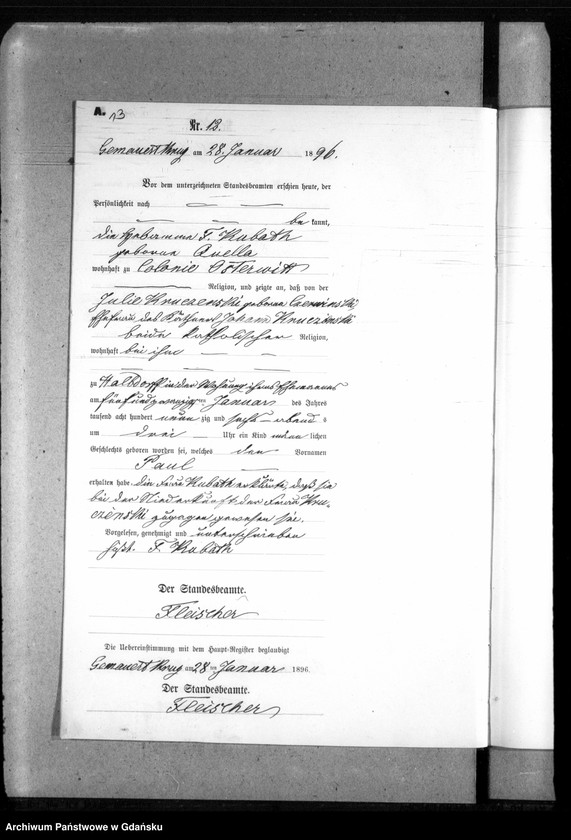 A. 13
Nr. 13.
Gemauert Krug am 28. Januar 1896.
Vor dem unterzeichneten Standesbeamten erschien heute, der
Persönlichkeit nach
be kannt,
die Hebamme F. Kubath
geborene Quella
wohnhaft zu Colonie Osterwitt
Religion, und zeigte an, daß von der
Julie Kruczenski geborene Czerwinski
Ehefrau des Käthners Johann Kruczinski
beide katholischer Religion,
wohnhaft bei ihm
zu Halbdorff in der Wohnung ihres Ehemannes
am fünfundzwanzigsten Januar des Jahres
tausend acht hundert neunzig und sechs abends
um drei Uhr ein Kind männlichen
Geschlechts geboren worden sei, welches den Vornamen
Paul
erhalten habe die Frau Kubath erklärte, daß sie
bei der Niederkunft der Frau Kru-
czenski zugegen gewesen sei.
Vorgelesen, genehmigt und unterschrieben
F. Kubath
Der Standesbeamte.
Fleischer
Die Uebereinstimmung mit dem Haupt-Register beglaubigt
Gemauert Krug am 28 ten Januar 1896.
Der Standesbeamte.
Fleischer
Archiwum Państwowe w Gdańsku